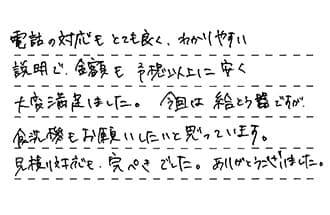 電話の対応もとても良く、わかりやすい
説明で、金額も予想以上に安く
大変満足しました。今回は給とう器ですが、
食洗機もお願いしたいと思っています。
見積り対応も、完ぺきでした。ありがとうございました。